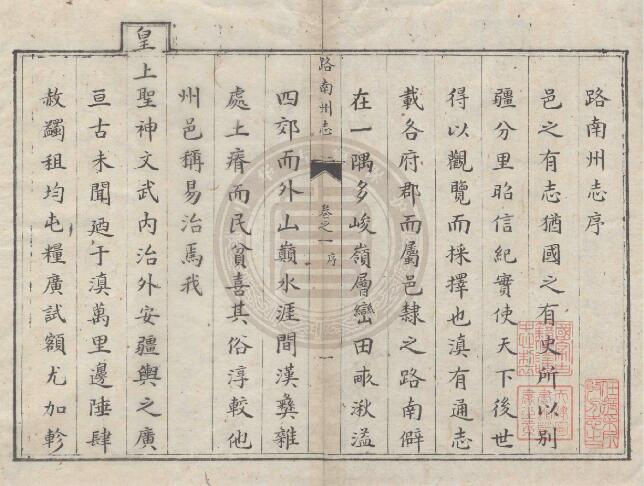 路南州志序
邑之有志猶國之有史所以别
疆分里昭信紀實使天下後世
得以觀覽而採擇也滇有通志
載各府郡而屬邑隸之路南僻
在一隅多峻嶺層巒田畝湫溢
路南州志
卷之一 序
一
四郊而外山巔水涯間漢彝雜
處土瘠而民貧喜其俗淳較他
州邑稱易治焉我
皇上聖神文武内治外安疆輿之廣
亘古未聞廼于滇萬里邊陲肆
赦蠲租均屯糧廣試額尤加軫